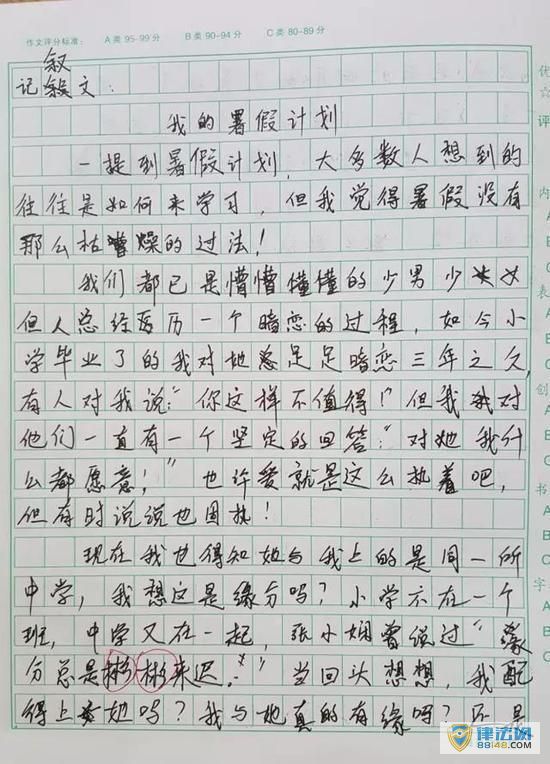 作文评分标准： A类 95-99分 B类 90-94分 C类 80-89分
叙
记文：
我的暑假计划
一提到暑假计划，大多数人想到的
往往是如何来学习，但我觉得暑假没有
那么枯燥的过法！
我们都已是懵懵懂懂的少男少女
但人总经历一个暗恋的过程，如今小
学毕业了的我对她足足暗恋三年之久，
有人对我说：“你这样不值得！”但我对
他们一直有一个坚定的回答：“对她我什
么都愿意！”也许爱就是这么执着吧，
但有时说说也固执！
现在我也得知她与我上的是同一所
中学，我想这是缘分吗？小学不在一个
班，中学又在一起，张小娴曾说过“缘
分总是彬彬来迟。”当回头想想，我配
得上她吗？我与她真的有缘吗？还是
优
☆
评
内
表
创
书
字
律法网
88148.com